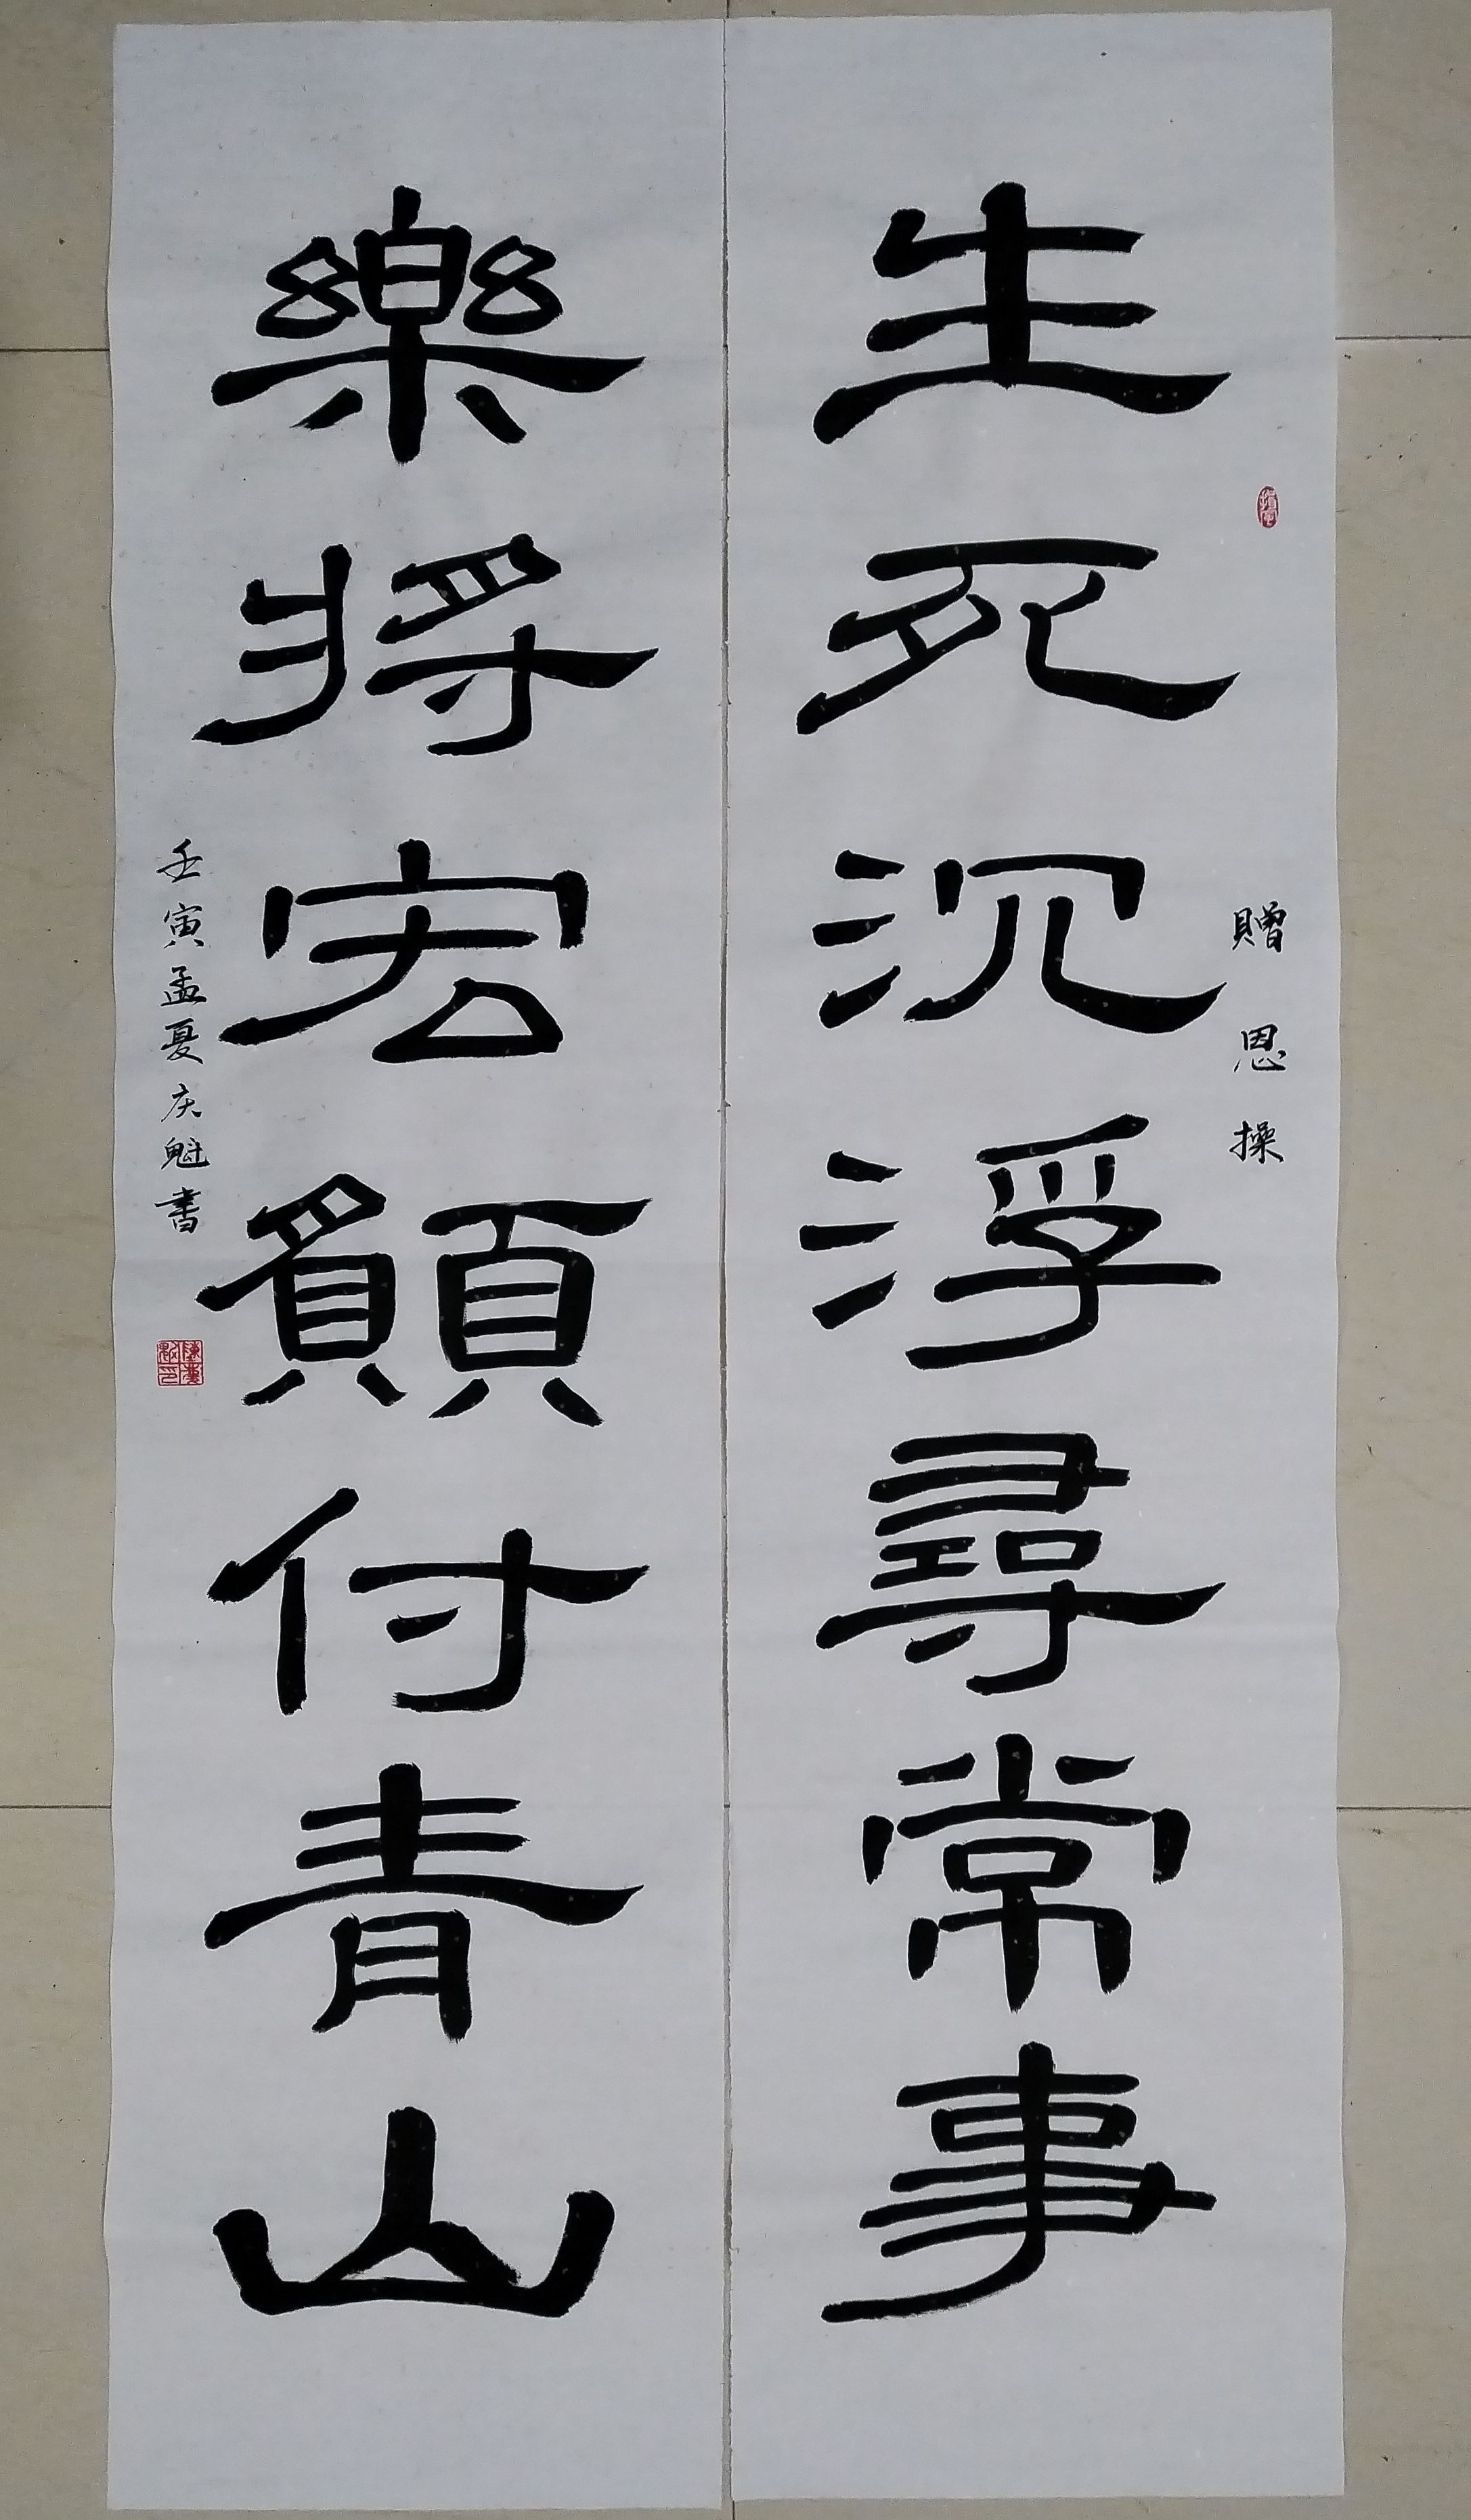 生死沉浮尋常事
贈恩操
樂將宏願付青山
壬寅孟夏庆魁書